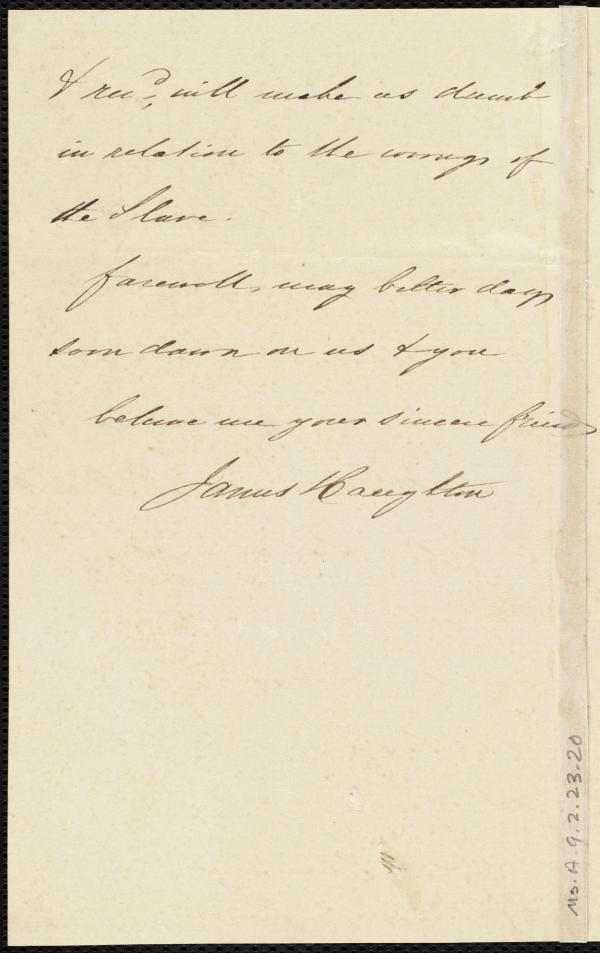 & recd, will make us dumb
in relation to the wrongs of
the Slave.
farewell, may better days
soon dawn on us & you
believe me your sincere friend
James Haughton
Ms. A. 9. 2. 23. 20